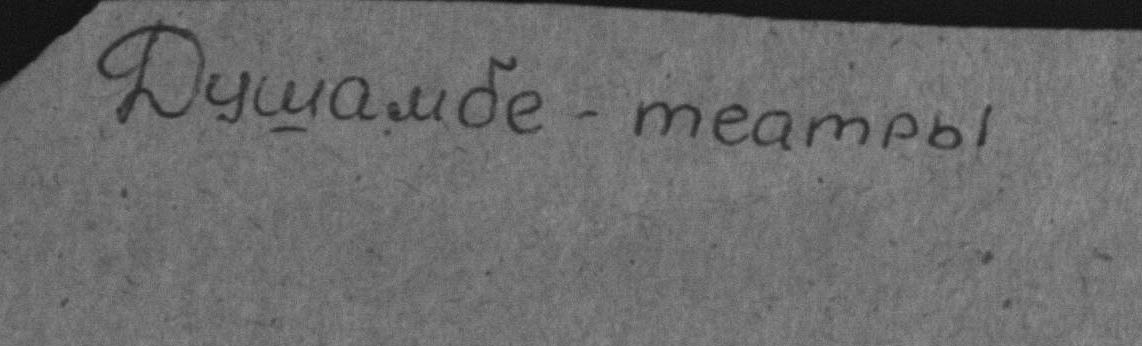 Душамбе - театры